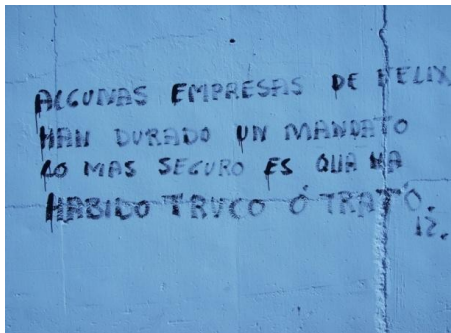 ALGUNAS EMPRESAS DE FELIX,
HAN DURADO UN MANDATO
LO MAS SEGURO ES QUA HA
HABIDO TRUCO Ó TRATÓ.
12.